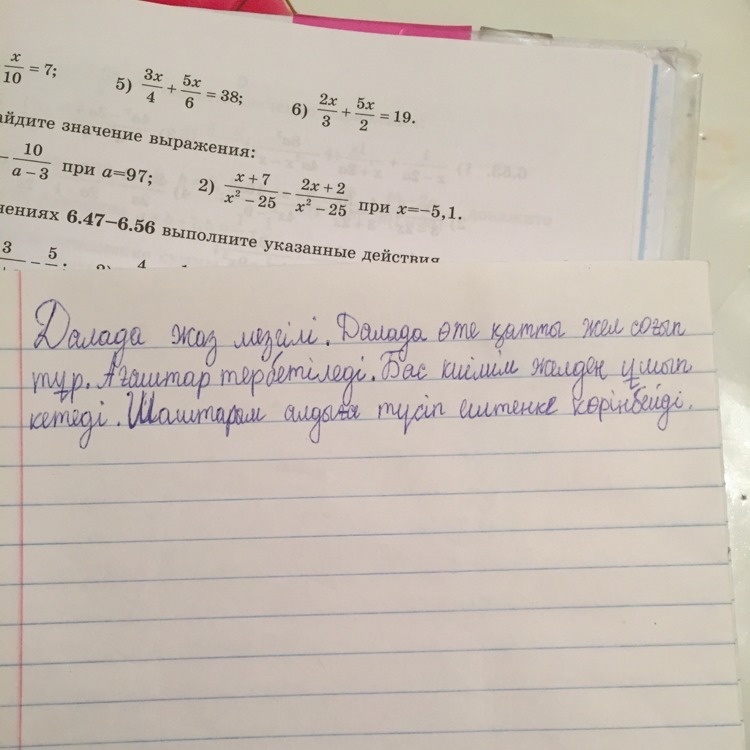 x/10 = 7; 5) 3x/4 + 5x/6 = 38; 6) 2x/3 + 5x/2 = 19.
айдите значение выражения:
- 10/(a - 3) при a=97; 2) (x + 7)/(x² - 25) - (2x + 2)/(x² - 25) при x=-5,1.
нениях 6.47–6.56 выполните указанные действия
Далада жаз мезгілі. Далада өте қатты жел соғып
тұр. Ағаштар тербетіледі. Бас киімім желден ұшып
кетеді. Шаштарым алдыға түсіп ештеңке көрінбейді.